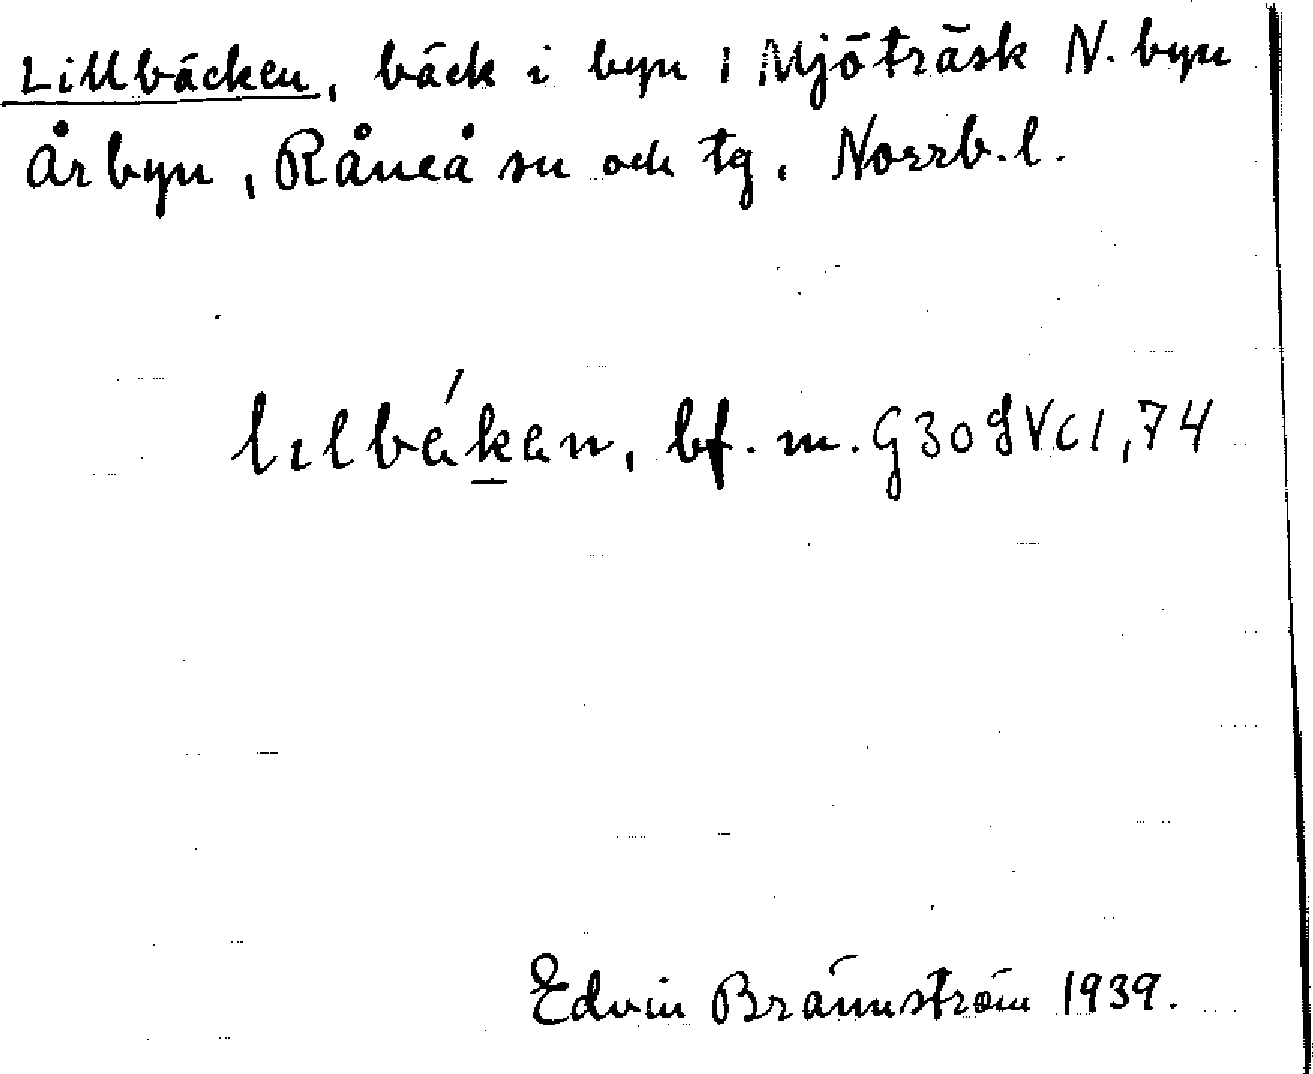 Lillbäcken, bäck i byn i Mjöträsk N. byn
Årbyn, Råneå sn och tg. Norrb. l.
lılbékan, bf. m. G30 VC1,74
Edvin Brännström 1939.